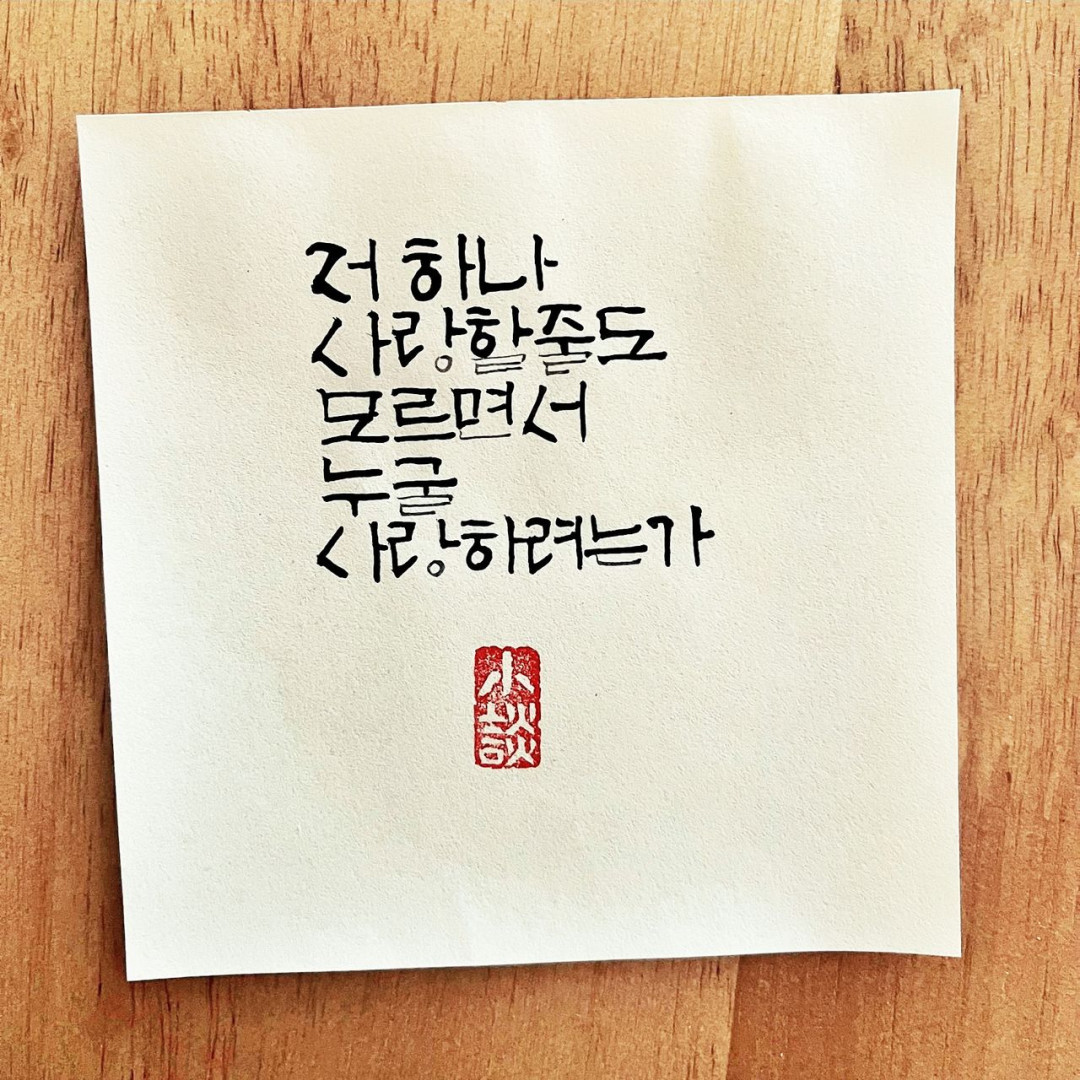 저 하나
사랑할줄도
모르면서
누굴
사랑하려는가
小談